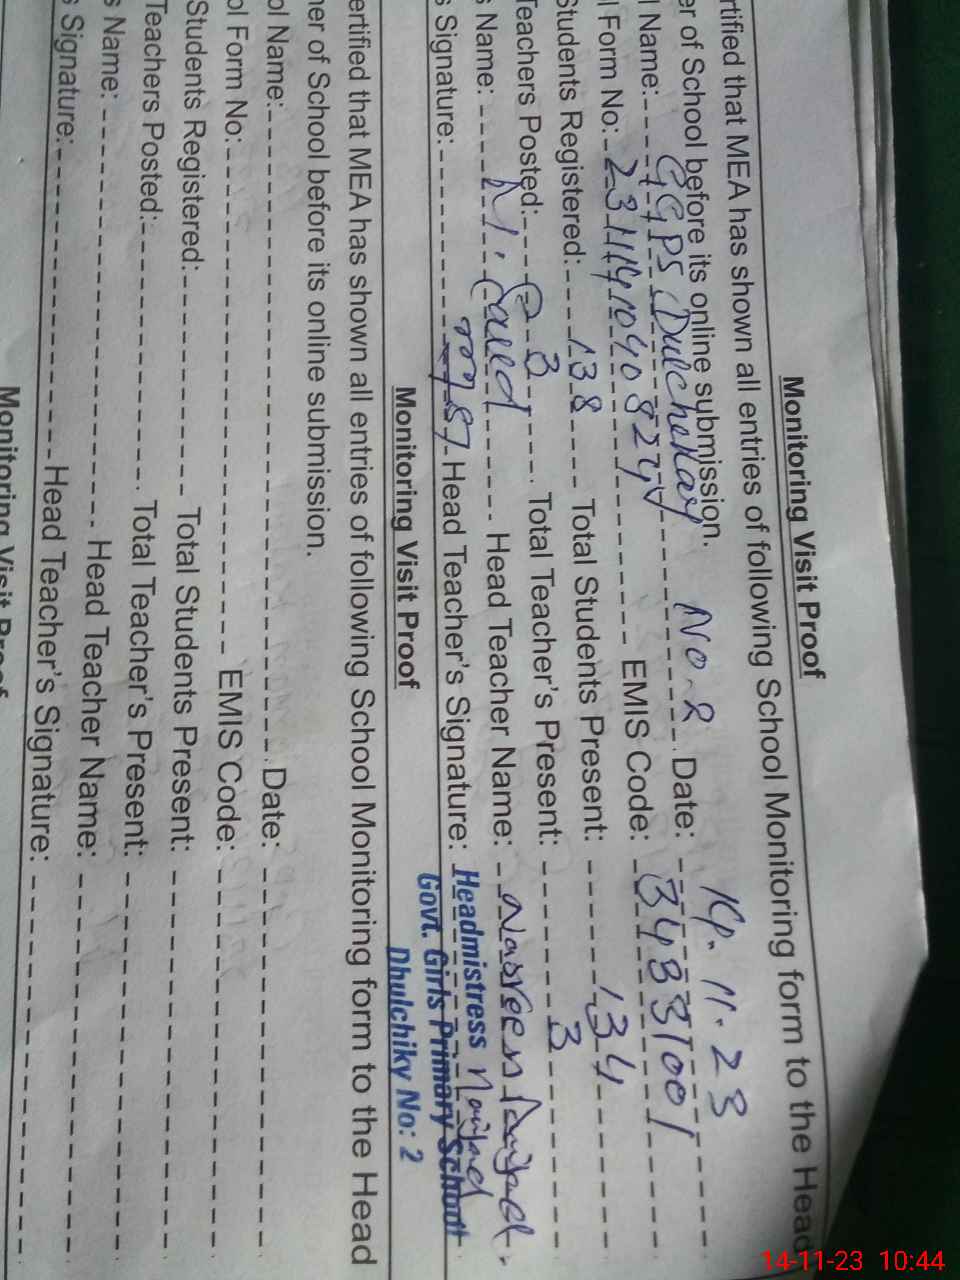 Monitoring Visit Proof
rtified that MEA has shown all entries of following School Monitoring form to the Head
er of School before its online submission.
l Name: GGPS Dulchekay No. 2 Date: 14.11.23
l Form No: EMIS Code: 34831001
Students Registered: 138 Total Students Present: 134
Teachers Posted: 3 Total Teacher's Present: 3
s Name: M. Saeed Head Teacher Name: Nasreen Amjad.
s Signature: Head Teacher's Signature:
Headmistress
Govt. Girls Primary School
Dhulchiky No: 2
Monitoring Visit Proof
ertified that MEA has shown all entries of following School Monitoring form to the Head
her of School before its online submission.
ol Name: Date:
ol Form No: EMIS Code:
Students Registered: Total Students Present:
Teachers Posted: Total Teacher's Present:
s Name: Head Teacher Name:
s Signature: Head Teacher's Signature:
Monitoring Visit Proof
14-11-23 10:44